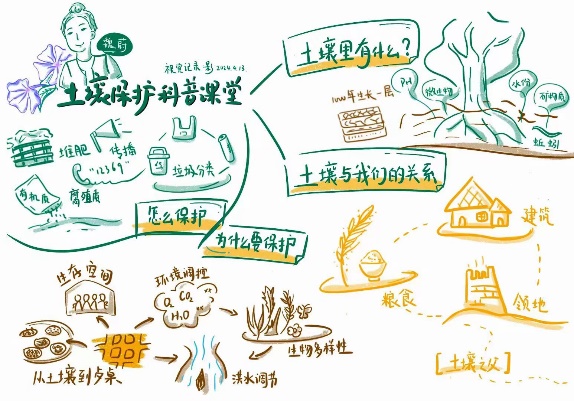 视觉记录 影 2024.4.13
土壤保护科普课堂
土壤里有什么?
1000年生长一层
PH
微生物
水份
矿物质
蚯蚓
堆肥
传播
"12369"
垃圾分类
有机质
腐殖质
怎么保护
土壤与我们的关系
建筑
粮食
领地
[土壤之父]
为什么要保护
生存空间
环境调控
O₂ CO₂
H₂O
生物多样性
从土壤到餐桌
洪水调节